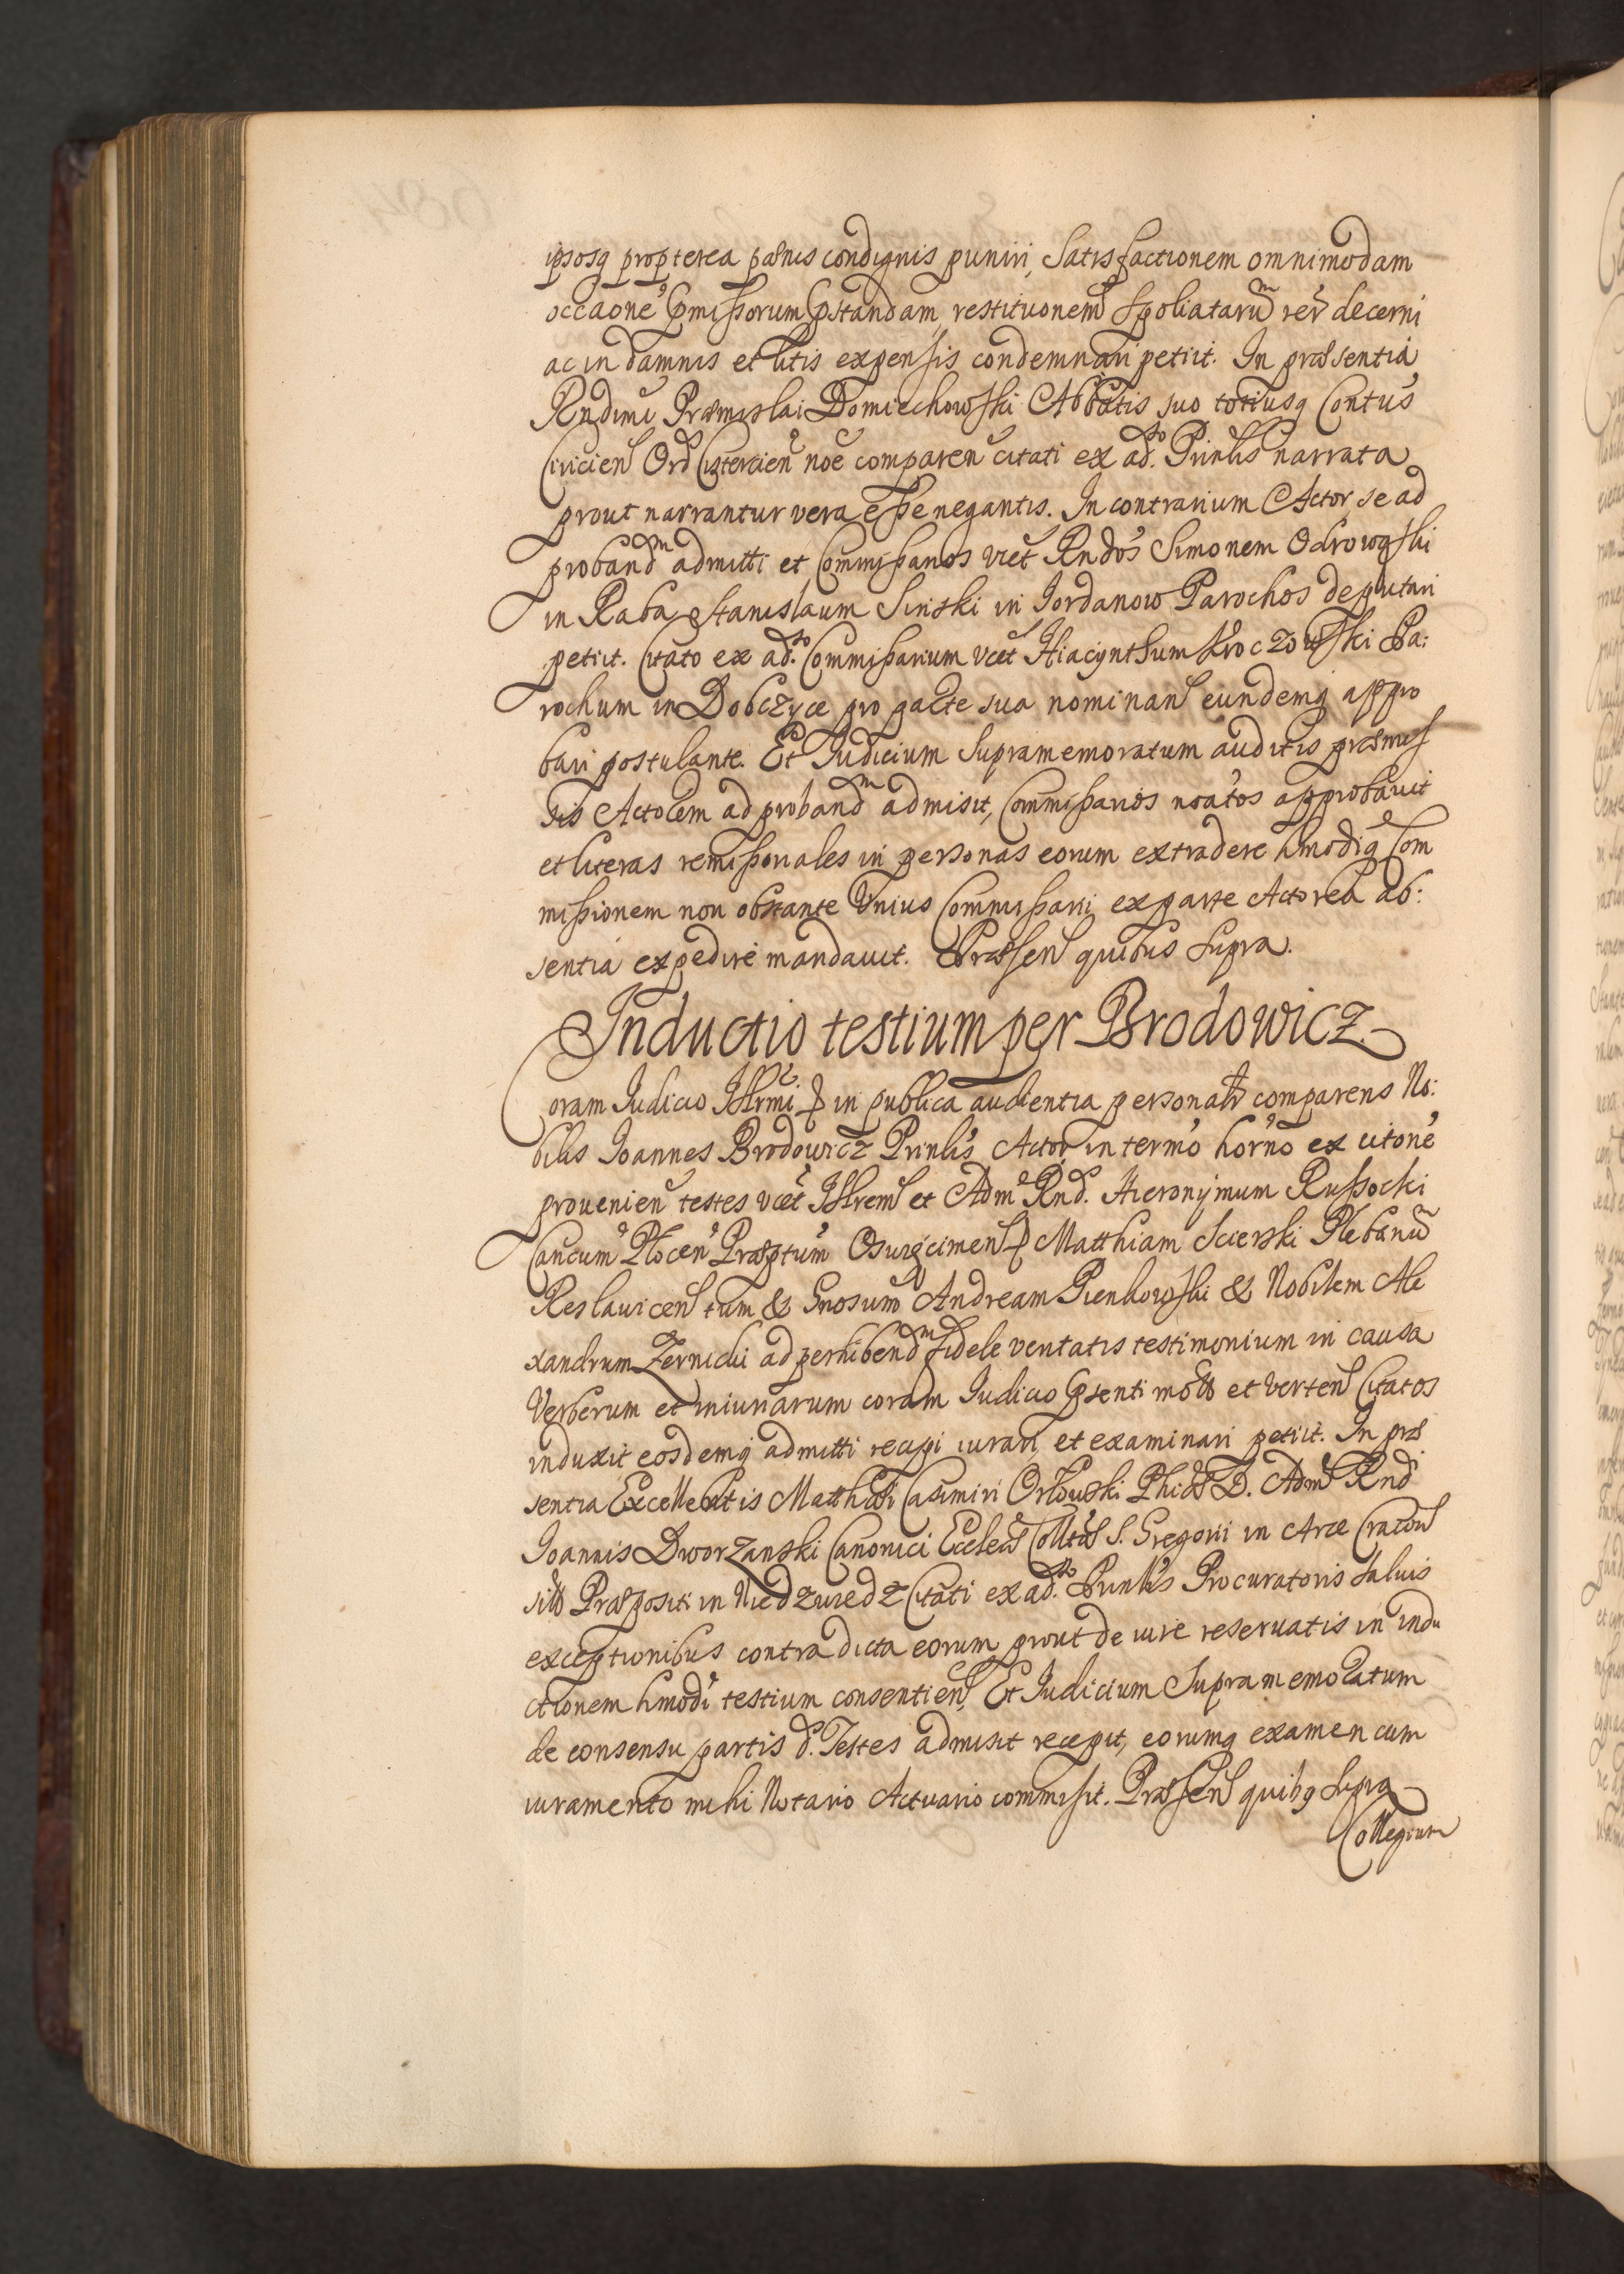 ipsosq propterea pænis condignis puniri, Satisfactionem omnimodam
occaone pmissorum pstandam, restituonem spoliatarum rer decerni
ac in damnis et litis expensis condemnari petiit. In præsentia
Rndimi Præmislai Domiechowski Abbatis suo totiusq Contus
Ciricien Ord Cistercien noe comparen citati ex ad.so Prinlis narrata
prout narrantur vera esse negantis. In contrarium Actor se ad
proband̃m admitti et Commissarios vict Rndos Simonem Odrowąski
in Raba Stanislaum Sinski in Jordanow Parochos deputari
petiit. Citato ex ad.so Commissarium vcet Hiacynthum Kroczowski Pa:
rochum in Dobczyce pro parte sua nominan eundemq appro
bari postulante. Et Judicium Supramemoratum auditis præmis
sis Actorem ad proband̃m admisit, Commissarios noatos approbavit
et literas remissoriales in personas eorum extradere hmodiq Com
missionem non obstante Vnius Commissarii ex parte Actorea ab:
sentia expedire mandavit. Præsen quibus supra.
Inductio testium per Brodowicz.
Coram Judicio Illrmi & in publica audientia personalr comparens No:
bilis Joannes Brodowicz Prinlis Actor in termo horno ex citone
provenien testes vcet Illrem et Adm Rnd. Hieronymum Russocki
Cancum Plocen Præptum Osvięcimen & Matthiam Scierski Plebanu
Reslavicen tum & Gnosum Andream Pienkowski & Nobilem Ale
xandrum Zernicki ad perhibend̃m fidele veritatis testimonium in causa
Verberum et iniuriarum coram Judicio psenti mota et verten Citatos
induxit eosdemq admitti recipi iurari et examinari petiit. In præ
sentia Excellentis Matthæi Casimiri Orlowski Phiæ D. Adm Rnd
Joannis Dworzanski Canonici Ecclæ Colltæ S. Gregorii in Arce Cracov
sita Præpositi in Niedzwiedz Citati ex ad.so Prinlis Procuratoris salvis
exceptionibus contra dicta eorum prout de iure reservatis in indu
ctionem hmodi testium consentien, Et Judicium Supramemoratum
de consensu partis d. Testes admisit recepit, eorumq examen cum
iuramento mihi Notario Actuario commisit. Præsen quibq supra
Collegium